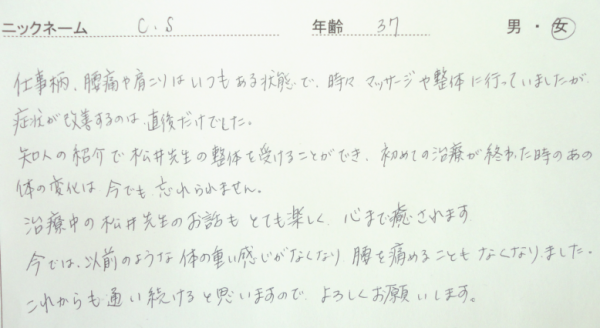 ニックネーム C.S 年齢 37 男・女
仕事柄、腰痛や肩こりはいつもある状態で、時々マッサージや整体に行っていましたが
症状が改善するのは直後だけでした。
知人の紹介で松井先生の整体を受けることができ、初めての治療が終わった時のあの
体の変化は今でも忘れられません。
治療中の松井先生のお話もとても楽しく、心まで癒されます
今では、以前のような体の重い感じがなくなり腰を痛めることもなくなりました。
これからも通い続けると思いますので、よろしくお願いします。